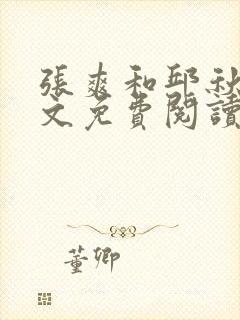 張爽和邱秋
文免費閱讀
董卿